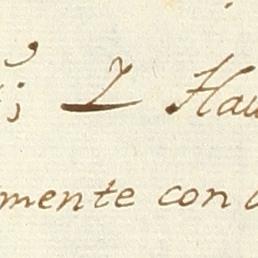 ; I Hau
mente con